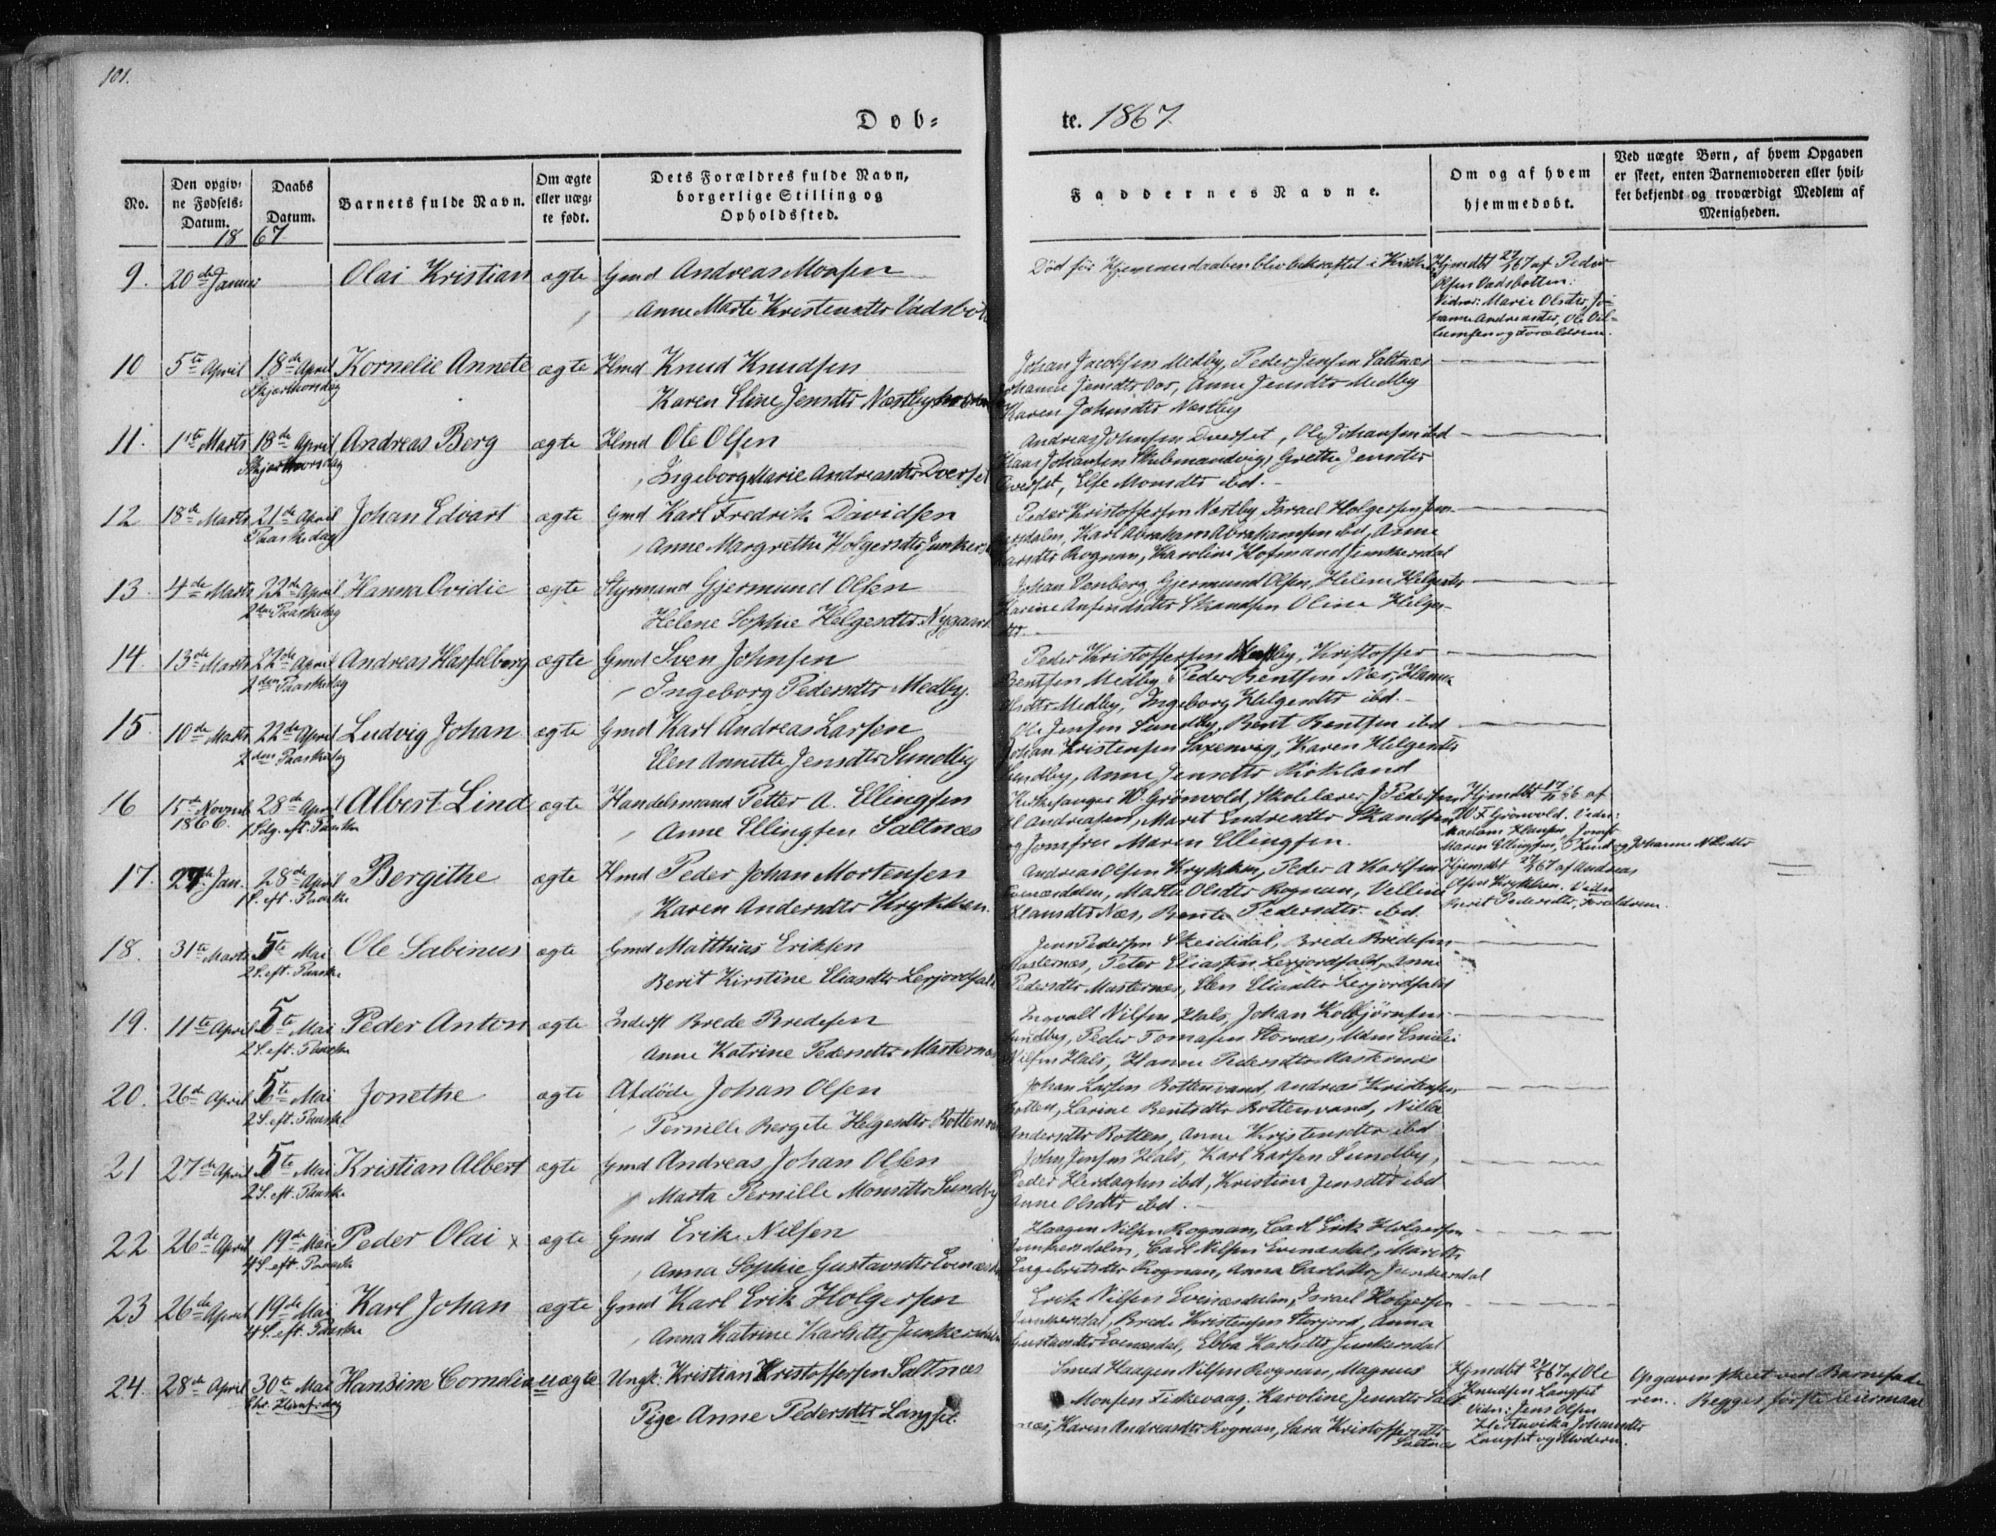 101.
Døb-
te. 1867.
No.
Den opgiv-
ne Fødsels-
Datum.
Daabs
Datum.
18 67.
Barnets fulde Navn.
Om ægte
eller uæg-
te født.
Dets Forældres fulde Navn,
borgerlige Stilling og
Opholdssted.
Faddernes Navne.
Om og af hvem
hjemmedøbt.
Ved uægte Børn, af hvem Opgaven
er skeet, enten Barnemoderen eller hvil-
ket bekjendt og troværdigt Medlem af
Menigheden.
9. 20de Januar Olai Kristian ægte Gmd Andreas Monsen
Anne Marte Kristensdtr Vadsbot
Død før Hjemmedaaben blev bekræftet i Kirken
Hjmdbt 27/1 67 af Peder
Olsen Vadsbotten:
Vidner: Marie Olsdtr, Jo-
hanne Andreasdtr, Ole
og Forældrene.
10 5te April 18de April Kornelie Annete ægte Hmd Knud Knudsen
Skjærthorsdag
Karen Eline Jensdtr Næstby
Johan Jacobsen Medby, Peder Jensen Saltnæs
Johanne Jensdtr Vos, Anne Jensdtr Medby
Karen Johnsdtr Næstby
11. 1ste Marts 18de April Andreas Berg ægte Hmd Ole Olsen
Skjærthorsdag
Ingeborg Marie Andreasdtr Dverset
Andreas Johnsen Dverset, Ole Johansen ibd
Hans Johansen Skubmandvig, Grethe Jensdtr
Dverset, Else Monsdtr ibd.
12 18de Marts 21de April Johan Edvart ægte Gmd Karl Fredrik Davidsen
Paaskedag
Anne Margrethe Holgersdtr Junkers
Peder Kristoffersen Næstby, Israel Holgersen Jun-
kersdalen, Karl Abraham Abrahamsen ibd, Anne
Larsdtr Rognan, Karoline Hofmand Junkersdal
13. 4de Marts 22de April Hanna Ovidie ægte Styrmand Gjermund Olsen
2den Paaskedag
Helene Sophie Helgesdtr Nygaard
Johan Venberg, Gjermund Olsen, Helene Helgesdtr
Karine Anfindsdtr Skandsen Oline Helges-
dtr.
14. 13de Marts 22de April Andreas Hasselberg ægte Gmd Sven Johnsen
2den Paaskedag
Ingeborg Pedersdtr Medby.
Peder Kristoffersen Næstby, Kristoffer
Bentsen Medby, Peder Bentsen Næs, Hanna
Olsdtr Medby, Ingeborg Helgesdtr ibd.
15. 10de Marts 22de April Ludvig Johan ægte Gmd Karl Andreas Larsen
2den Paaskedag
Elen Annette Jensdtr Sundby
Ole Jensen Sundby, Bent Bentsen ibd
Johan Kristensen Saxenvig, Karen Helgesdtr
Sundby, Anne Jensdtr Kirkland
16 15de Novemb 28de April Albert Lind ægte Handelsmand Petter A. Ellingsen
1866. 1 Sdg. eft. Paaske
Anne Ellingsen Saltnæs
Kirkesanger W. Grønvold, Skolelærer J Pedersen
Andreasen, Marit Endresdtr Skandsen
og Jomfru Maren Ellingsen.
Hjmdbt 17/11 66 af
W F Grønvold. Vidn:
Madam Hansen, Jomfr
Maren Ellingsen, P Lind og Johanne Nilsdtr
17. 27de Jan. 28de April Bergithe ægte Hmd Peder Johan Mortensen
1 S. eft. Paaske
Karen Andersdtr Krykken.
Andreas Olsen Krykken, Peder A Karlsen
Evenesdalen, Marta Olsdtr Rognan, Vellene
Klausdtr Næs, Bente Pedersdtr ibd.
Hjemdbt 27/1 67 af Andreas
Olsen Krykken. Vidn
Berit Pedersdtr, Forældrene.
18. 31te Marts 5te Mai Ole Sabinus ægte Gmd Matthias Eriksen
2 S. eft. Paaske
Berit Kirstine Eliasdtr Lerjordfald
Jens Pedersen Skeididal, Brede Bredesen
Masternæs, Peter Eliassen Lerjordfald, Anne
Pedersdtr Masternæs, Elen Eliasdtr Lerjordfald
19. 11te April 5te Mai Peder Anton ægte Inderst Brede Bredesen
2 S. eft. Paaske
Anne Katrine Pedersdtr Masternæs
Ingvald Nilsen Hals, Johan Kolbjørnsen
Sundby, Peder Tomasen Stornæs, Mdm Emilie
Nilsen Hals, Hanne Pedersdtr Masternæs
20. 26de April 5te Mai Jonethe ægte Afdøde Johan Olsen
2 S. eft. Paaske
Pernille Bergite Helgesdtr Bottenvand
Johan Larsen Bottenvand, Andreas Kristensen
Botten, Larine Bentsdtr Bottenvand, Nilla
Andersdtr Botten, Anne Kristensdtr ibd
21 27de April 5te Mai Kristian Albert ægte Gmd Andreas Johan Olsen
2 S. eft. Paaske
Marta Pernille Monsdtr Sundby
John Jensen Hals, Karl Larsen Sundby,
Peder Herdagsen ibd, Kristine Jensdtr ibd
Anne Olsdtr ibd.
22 26de April 19de Mai Peder Olai x ægte Gmd Erik Nilsen
4 S. eft. Paaske
Anna Sophie Gustavsdtr Evenæsdal
Haagen Nilsen Rognan, Carl Erik Holgersen
Junkersdalen, Carl Nilsen Evenæsdal, Marith
Engebretsdtr Rognan, Anna Carlsdtr Junkersdal
23 26de April 19de Mai Karl Johan ægte Gmd Karl Erik Holgersen
4 S. eft. Paaske
Anna Katrine Karlsdtr Junkersdalen
Erik Nilsen Evenæsdalen, Israel Holgersen
Junkersdal, Brede Kristensen Storjord, Anna
Gustavsdtr Evenæsdal, Ebba Karlsdtr Junkersdal
24. 28de April 30te Mai Hansine Cornelia uægte Ungk. Kristian Kristoffersen Saltnæs
Chr. Himfrdag
Pige Anne Pedersdtr Langset.
Smed Haagen Nilsen Rognan, Magnus
Monsen Fiskevaag, Karoline Jensdtr Salt
næs, Karen Andreasdtr Rognan, Sara Kristoffersdtr
Saltnæs
Hjmdbt 29/4 67 af Ole
Knudsen Langset
Vidn: Jens Olsen
Hestevika, Johansdtr
Langset og Moderen.
Opgaven skeet ved Barnefade
ren. Begges første Leiermaal